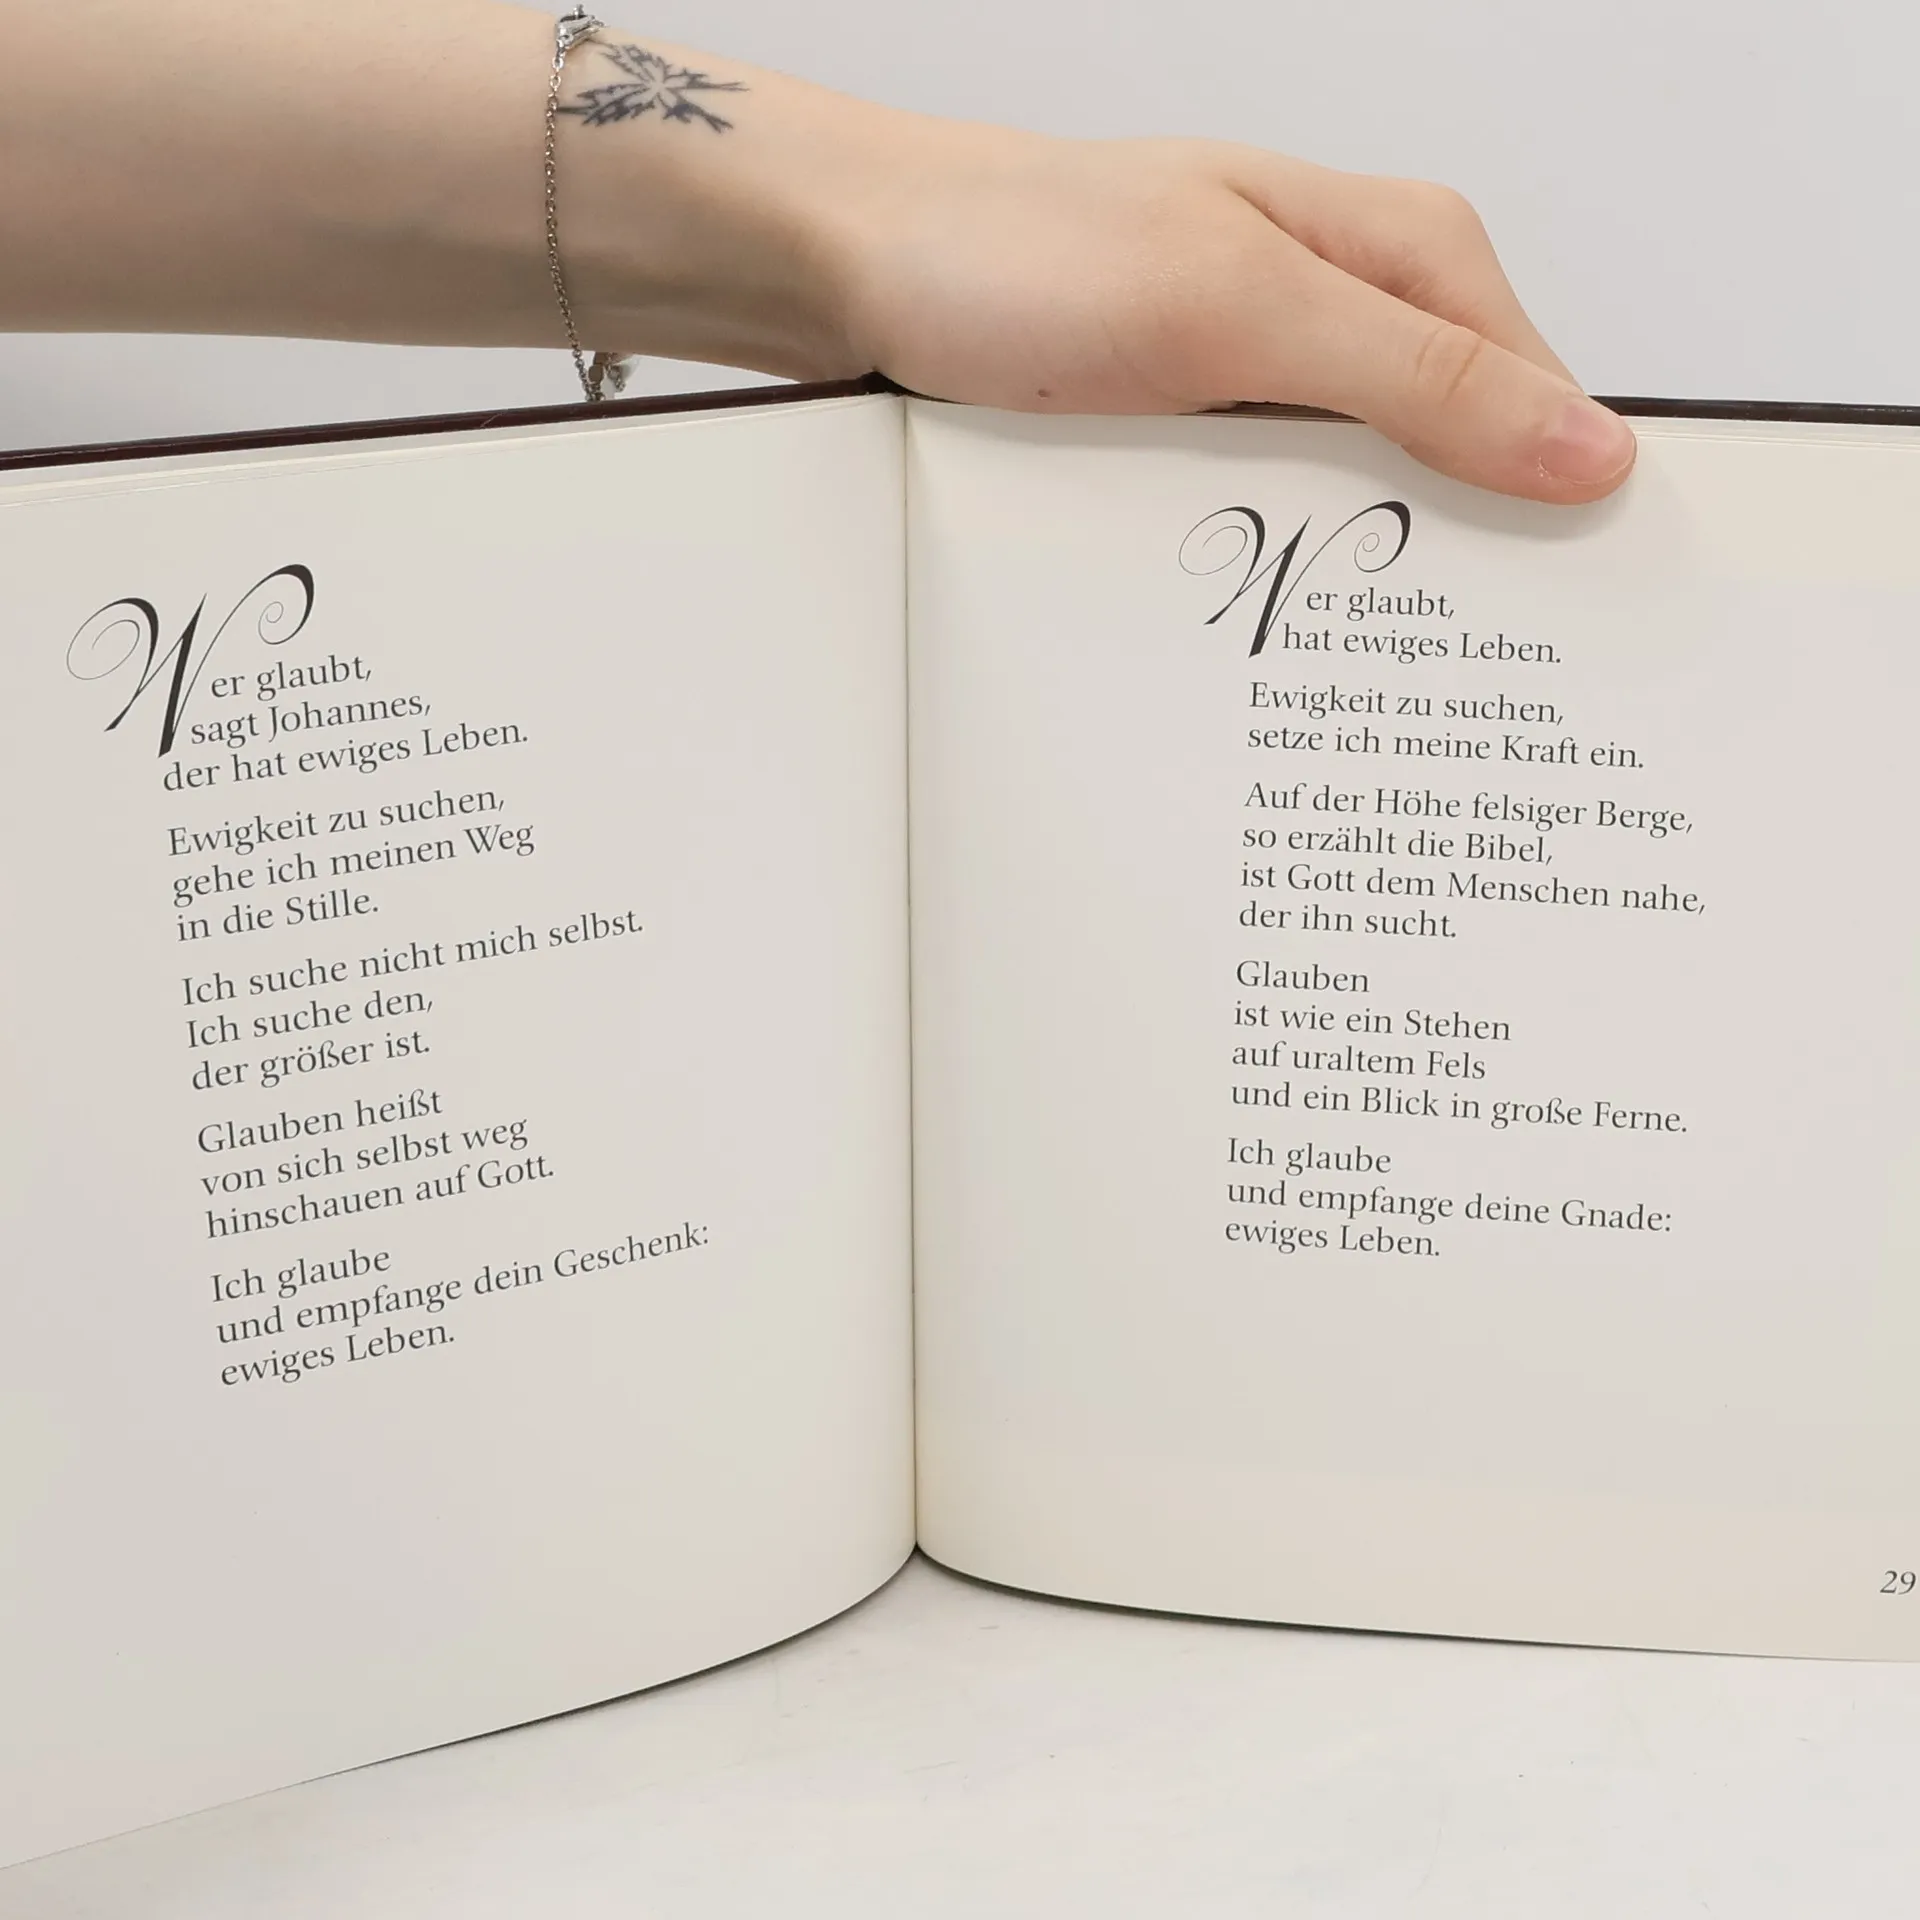 Wer glaubt,
sagt Johannes,
der hat ewiges Leben.
Ewigkeit zu suchen,
gehe ich meinen Weg
in die Stille.
Ich suche nicht mich selbst.
Ich suche den,
der größer ist.
Glauben heißt
von sich selbst weg
hinschauen auf Gott.
Ich glaube
und empfange dein Geschenk:
ewiges Leben.
Wer glaubt,
hat ewiges Leben.
Ewigkeit zu suchen,
setze ich meine Kraft ein.
Auf der Höhe felsiger Berge,
so erzählt die Bibel,
ist Gott dem Menschen nahe,
der ihn sucht.
Glauben
ist wie ein Stehen
auf uraltem Fels
und ein Blick in große Ferne.
Ich glaube
und empfange deine Gnade:
ewiges Leben.
29